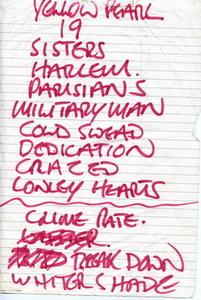 YELLOW PEARL
19
SISTERS
HARLEM.
PARISIANS
MILITARY MAN
COLD SWEAD
DEDICATION
CRAZED
LONLEY HEARTS
CRIME RATE.
BREAK DOWN
WHITER SHADE